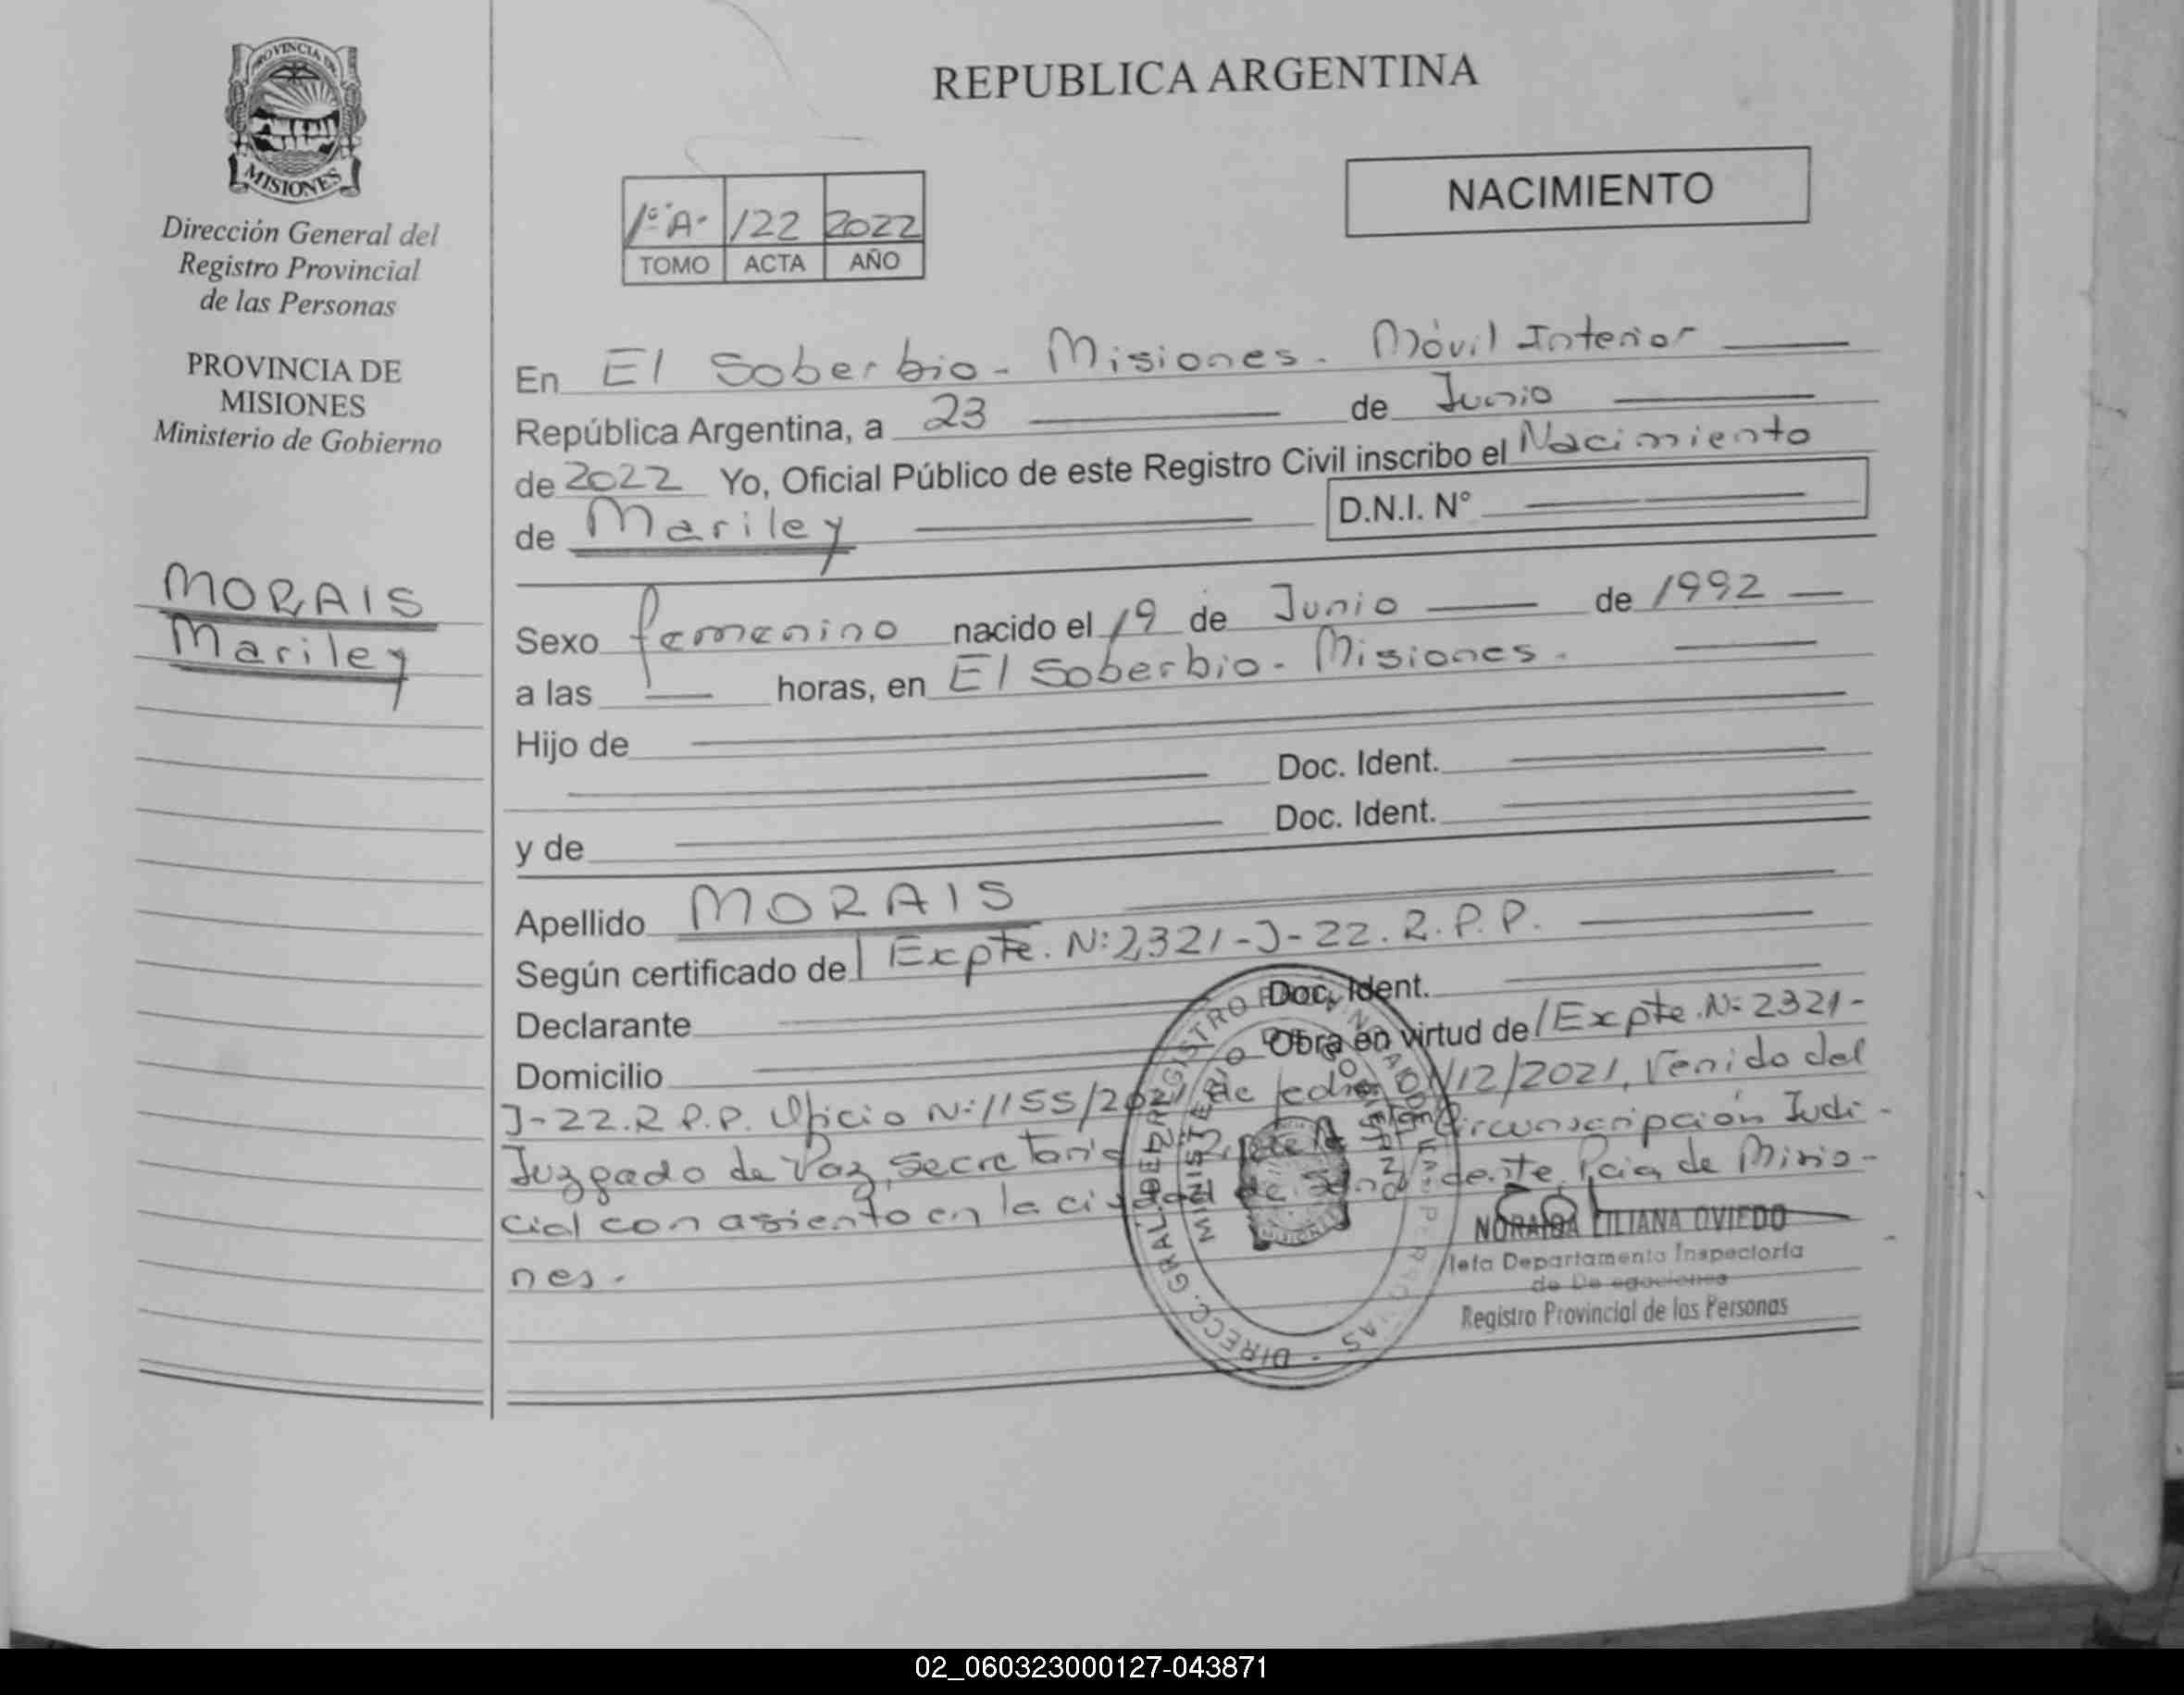 PROVINCIA DE
MISIONES
Dirección General del
Registro Provincial
de las Personas
PROVINCIA DE
MISIONES
Ministerio de Gobierno
MORAIS
Mariley
REPUBLICA ARGENTINA
NACIMIENTO
1º "A" 122 2022
TOMO ACTA AÑO
En El Soberbio - Misiones - Móvil Interior
República Argentina, a 23 de Junio
de 2022 Yo, Oficial Público de este Registro Civil inscribo el Nacimiento
de Mariley D.N.I. N°
Sexo femenino nacido el 19 de Junio de 1992
a las horas, en El Soberbio - Misiones.
Hijo de
Doc. Ident.
y de Doc. Ident.
Apellido MORAIS
Según certificado de Expte. N: 2321-J-22. R. P. P.
Declarante Doc. Ident.
Domicilio Obra en virtud de Expte. N: 2321-
J-22. R P. P. Oficio N: 1155/2021 de fecha /12/2021, Venido del
Juzgado de Paz, Secretaria Circunscripción Judi-
cial con asiento en la ciudad de Pcia de Misio-
nes.
DIRECC. GRAL. DEL REGISTRO PROVINCIAL DE LAS PERSONAS
MINISTERIO DE GOBIERNO
MISIONES
NORAIDA LILIANA OVIEDO
Jefa Departamento Inspectoría
de Delegaciones
Registro Provincial de las Personas
02_060323000127-043871